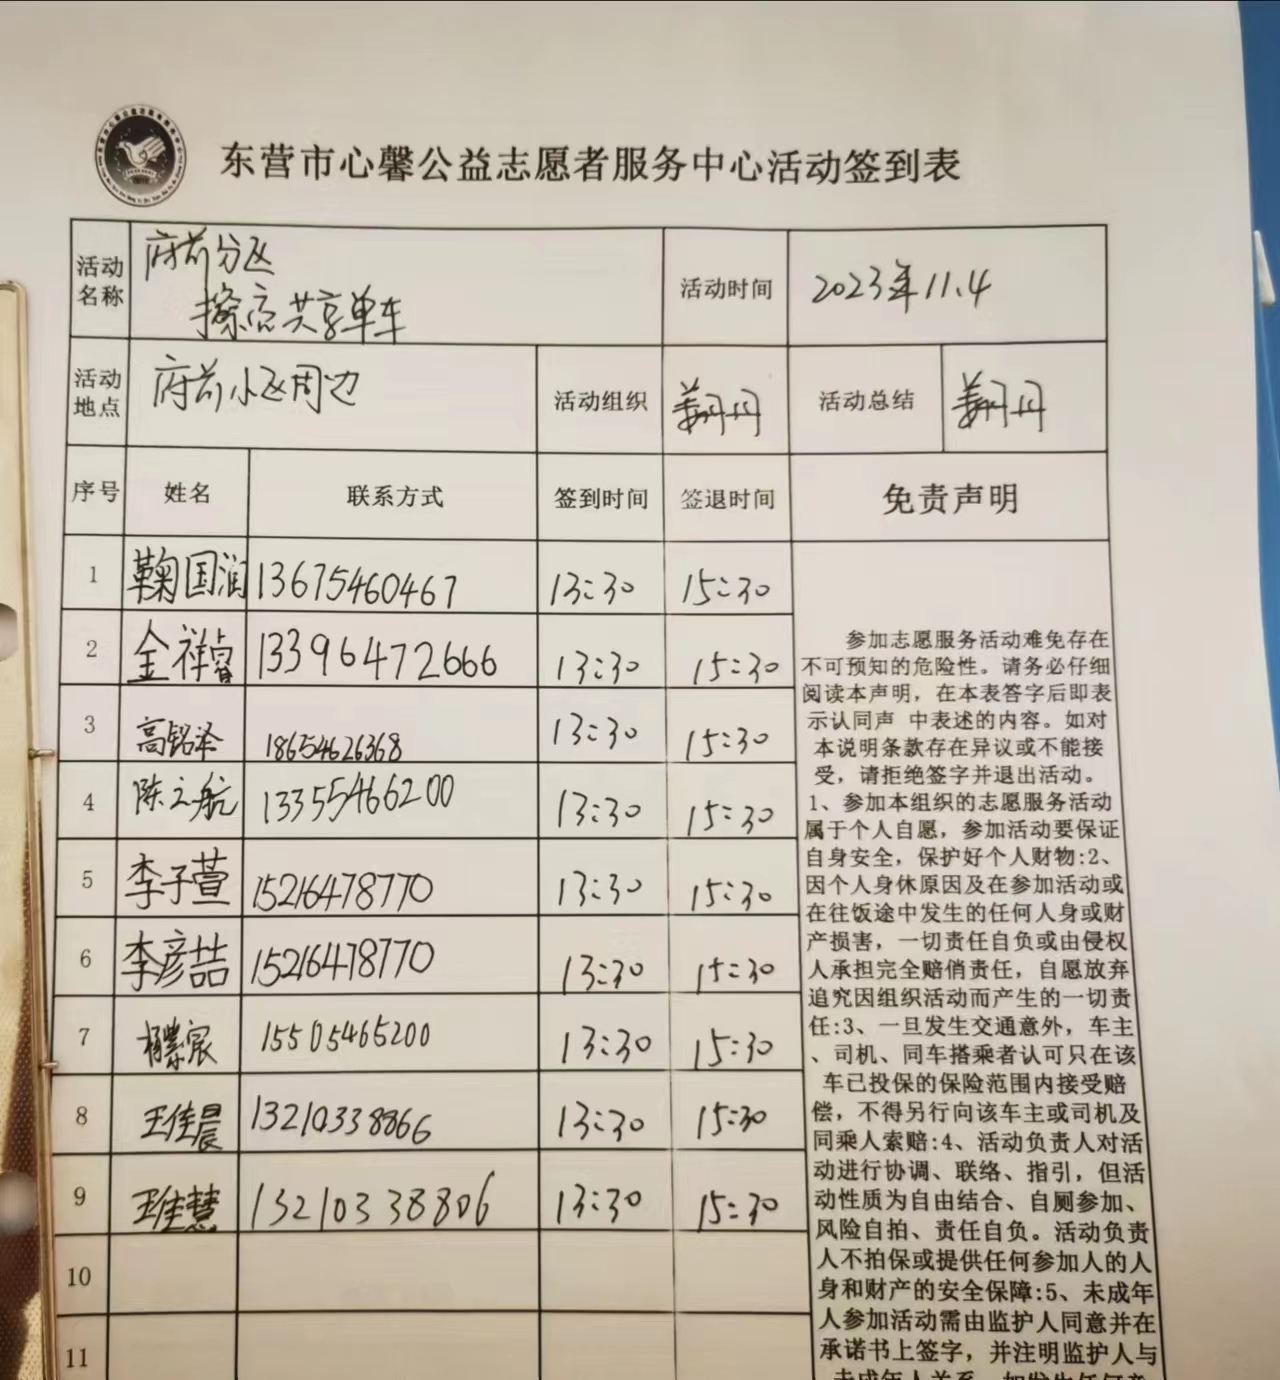 东营市心馨公益志愿者服务中心活动签到表
活动名称
府前分区
擦亮共享单车
活动时间
2023年11.4
活动地点
府前小区周边
活动组织
姜丹丹
活动总结
姜丹丹
序号 姓名 联系方式 签到时间 签退时间 免责声明
1 鞠国润 13675460467 13:30 15:30
2 金祥睿 13396472666 13:30 15:30
3 高铭泽 18654626368 13:30 15:30
4 陈之航 13355466200 13:30 15:30
5 李子萱 15216478770 13:30 15:30
6 李彦喆 15216478770 13:30 15:30
7 宸 15505465200 13:30 15:30
8 王佳晨 13210338866 13:30 15:30
9 王佳慧 13210338806 13:30 15:30
10
11
参加志愿服务活动难免存在
不可预知的危险性。请务必仔细
阅读本声明，在本表答字后即表
示认同声 中表述的内容。如对
本说明条款存在异议或不能接
受，请拒绝签字并退出活动。
1、参加本组织的志愿服务活动
属于个人自愿，参加活动要保证
自身安全，保护好个人财物:2、
因个人身休原因及在参加活动或
在往饭途中发生的任何人身或财
产损害，一切责任自负或由侵权
人承担完全赔俏责任，自愿放弃
追究因组织活动而产生的一切责
任:3、一旦发生交通意外，车主
、司机、同车搭乘者认可只在该
车已投保的保险范围内接受赔
偿，不得另行向该车主或司机及
同乘人索赔:4、活动负责人对活
动进行协调、联络、指引，但活
动性质为自由结合、自厕参加、
风险自拍、责任自负。活动负责
人不拍保或提供任何参加人的人
身和财产的安全保障:5、未成年
人参加活动需由监护人同意并在
承诺书上签字，并注明监护人与